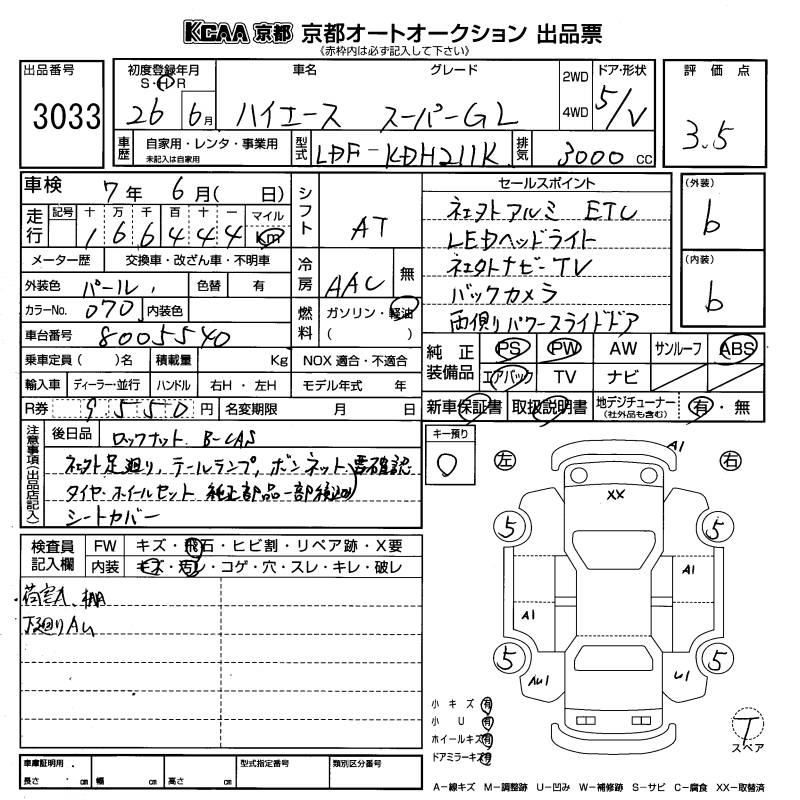 KCAA 京都 京都オートオークション 出品票
《赤枠内は必ず記入して下さい》
出品番号 3033
初度登録年月 S・H・R 26 6月
車名 ハイエース グレード スーパーGL
2WD 4WD
ドア・形状 5/V
評価点 3.5
車歴 自家用・レンタ・事業用 未記入は自家用
型式 LDF-KDH211K
排気 3000 cc
車検 7年 6月( 日)
走行 記号 十 万 千 百 十 一 マイル
166444 Km
メーター歴 交換車・改ざん車・不明車
外装色 パール 色替 有
カラーNo. 070 内装色
車台番号 8005540
乗車定員( )名 積載量 Kg
輸入車 ディーラー・並行 ハンドル 右H・左H
R券 9550円 名変期限 月 日
シフト AT
冷房 AAC 無
燃料 ガソリン・軽油 ( )
NOX 適合・不適合
モデル年式 年
セールスポイント
ネェクトアルミ ETC
LEDヘッドライト
ネェクトナビーTV
バックカメラ
両側リパワースライドドア
(外装) b
(内装) b
純正装備品 PS PW AW サンルーフ ABS
エアバック TV ナビ
新車保証書 取扱説明書 地デジチューナー(社外品も含む) 有・無
注意事項(出品店記入)
後日品 ロックナット B-CAS
ネェクト足廻り,テールランプ,ボンネット,要確認
タイヤ・ホイールセット 純正部品一部後廻り
シートカバー
キー預り 0
検査員記入欄
FW キズ・飛石・ヒビ割・リペア跡・X要
内装 キズ・汚レ・コゲ・穴・スレ・キレ・破レ
・荷室A、
下廻りA
左 右
A1
XX
5 5
A1
A1
5 5
AU1 U1
小キズ 有
小U 有
ホイールキズ 有
ドアミラーキズ 有
T
スペア
車庫証明用 長さ cm 幅 cm 高さ cm
型式指定番号 類別区分番号
A-線キズ M-調整跡 U-凹み W-補修跡 S-サビ C-腐食 XX-取替済